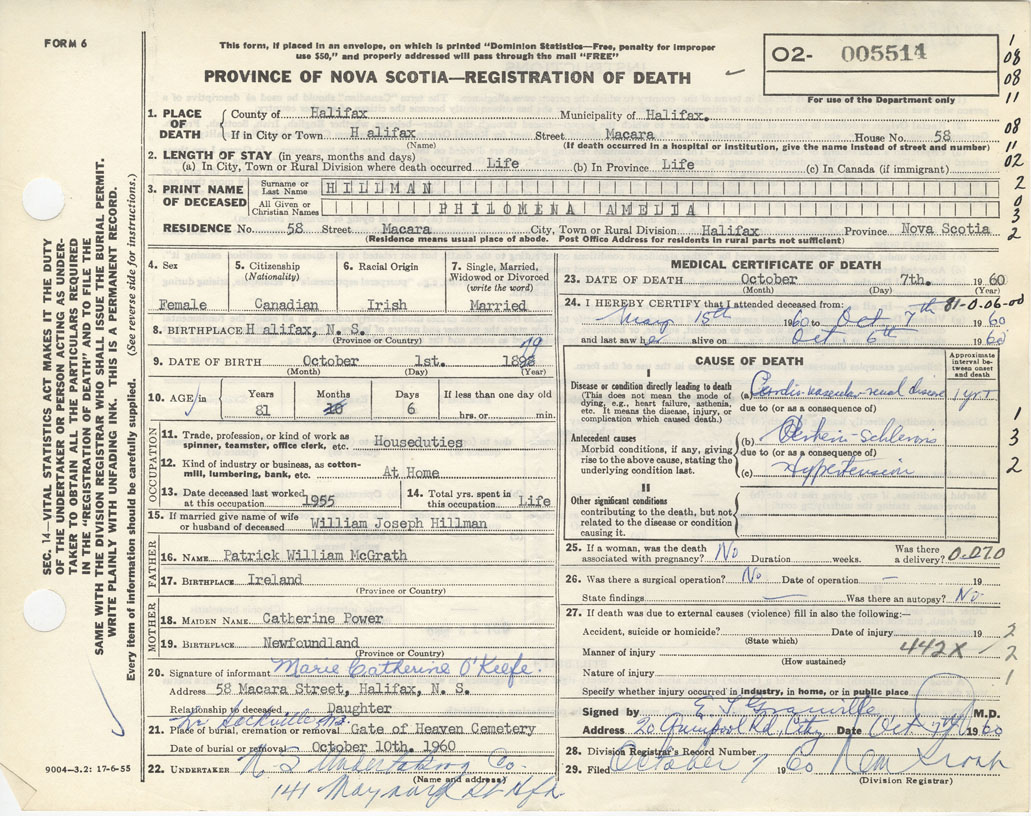 FORM 6
This form, if placed in an envelope, on which is printed "Dominion Statistics—Free, penalty for improper
use $50," and properly addressed will pass through the mail "FREE"
PROVINCE OF NOVA SCOTIA—REGISTRATION OF DEATH
02- 005514
For use of the Department only
1
08
08
11
08
11
02
2
0
3
2
SEC. 14—VITAL STATISTICS ACT MAKES IT THE DUTY
OF THE UNDERTAKER OR PERSON ACTING AS UNDER-
TAKER TO OBTAIN ALL THE PARTICULARS REQUIRED
IN THE "REGISTRATION OF DEATH" AND TO FILE THE
SAME WITH THE DIVISION REGISTRAR WHO SHALL ISSUE THE BURIAL PERMIT.
WRITE PLAINLY WITH UNFADING INK. THIS IS A PERMANENT RECORD.
Every item of information should be carefully supplied. (See reverse side for instructions.)
1. PLACE OF DEATH
County of Halifax Municipality of Halifax.
If in City or Town H alifax Street Macara House No. 58
(Name) (If death occurred in a hospital or institution, give the name instead of street and number)
2. LENGTH OF STAY (in years, months and days)
(a) In City, Town or Rural Division where death occurred Life (b) In Province Life (c) In Canada (if immigrant)
3. PRINT NAME OF DECEASED
Surname or Last Name HILLMAN
All Given or Christian Names PHILOMENA AMELIA
RESIDENCE No. 58 Street Macara City, Town or Rural Division Halifax Province Nova Scotia
(Residence means usual place of abode. Post Office Address for residents in rural parts not sufficient)
4. Sex
Female
5. Citizenship (Nationality)
Canadian
6. Racial Origin
Irish
7. Single, Married, Widowed or Divorced (write the word)
Married
8. BIRTHPLACE H alifax, N. S.
(Province or Country)
9. DATE OF BIRTH October 1st. 1898 79
(Month) (Day) (Year)
10. AGE in
Years 81
Months
Days 6
If less than one day old
hrs. or min.
OCCUPATION
11. Trade, profession, or kind of work as spinner, teamster, office clerk, etc. Houseduties
12. Kind of industry or business, as cotton-mill, lumbering, bank, etc. At Home
13. Date deceased last worked at this occupation 1955
14. Total yrs. spent in this occupation Life
15. If married give name of wife or husband of deceased William Joseph Hillman
FATHER
16. NAME Patrick William McGrath
17. BIRTHPLACE Ireland
(Province or Country)
MOTHER
18. MAIDEN NAME Catherine Power
19. BIRTHPLACE Newfoundland
(Province or Country)
20. Signature of informant Marie Catherine O'Keefe
Address 58 Macara Street, Halifax, N. S.
Relationship to deceased Daughter
Sackville
21. Place of burial, cremation or removal Gate of Heaven Cemetery
Date of burial or removal October 10th. 1960
22. UNDERTAKER N S Undertaking Co.
(Name and address)
141 Maynard St Hfx
9004—3.2: 17-6-55
MEDICAL CERTIFICATE OF DEATH
23. DATE OF DEATH October 7th. 1960
(Month) (Day) (Year)
81-0.06-00
24. I HEREBY CERTIFY that I attended deceased from:
May 15th 1960 to Oct 7th 1960
and last saw her alive on Oct. 6th 1960
CAUSE OF DEATH
Approximate interval between onset and death
I
Disease or condition directly leading to death
(This does not mean the mode of dying, e.g., heart failure, asthenia, etc. It means the disease, injury, or complication which caused death.)
(a) Cardio-vascular-renal disease 1 yr.+
due to (or as a consequence of)
Antecedent causes
Morbid conditions, if any, giving rise to the above cause, stating the underlying condition last.
(b)
due to (or as a consequence of)
(c) Hypertension
II
Other significant conditions
contributing to the death, but not related to the disease or condition causing it.
1
3
2
25. If a woman, was the death associated with pregnancy? No Duration weeks. Was there a delivery? 0-070
26. Was there a surgical operation? No Date of operation — 19
State findings — Was there an autopsy? No
27. If death was due to external causes (violence) fill in also the following:—
Accident, suicide or homicide? Date of injury 19 2
(State which)
Manner of injury 442X 2
(How sustained)
Nature of injury 1
Specify whether injury occurred in industry, in home, or in public place
Signed by E. Granville M.D.
Address 20 Quinpool Rd, City Date Oct 7th 1960
28. Division Registrar's Record Number
29. Filed October 7 1960
(Division Registrar)